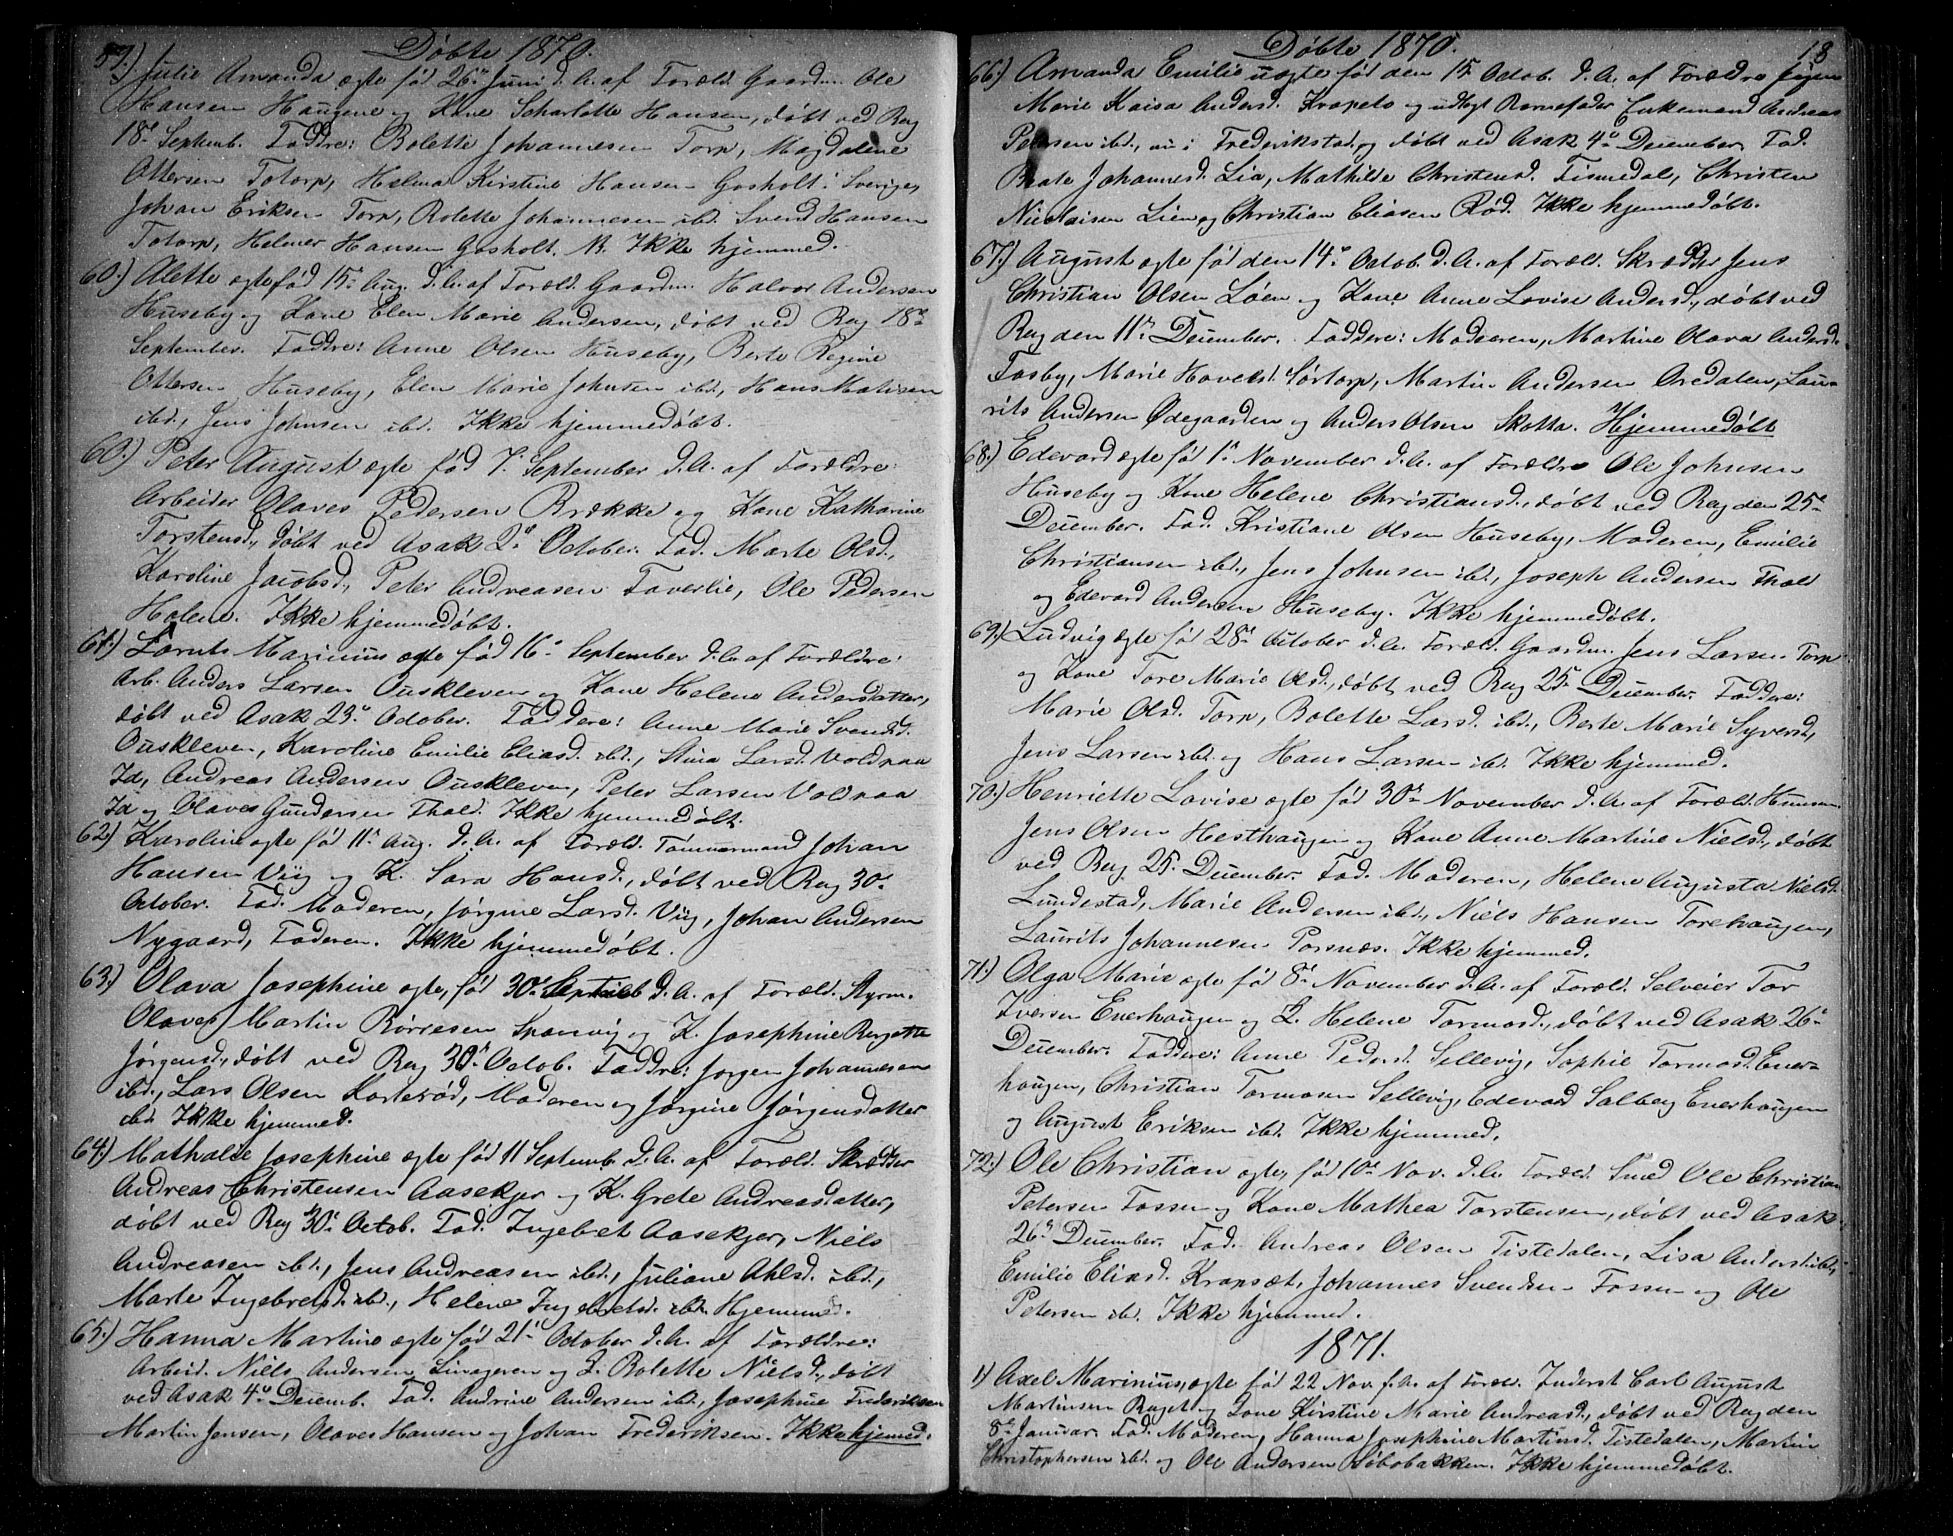 Døbte 1870.
59.) Julie Amanda ægte fød 26de Juni d. A. af Foræld. Gaardm. Ole
Hansen Haugene og Kone Scharlotte Hansen, døbt ved Bag
18de Septemb. Faddre: Bolette Johannesen Torp, Magdalene
Ottersen Totorp, Helma Kirstine Hansen Gosholt i Sverige,
Johan Eriksen Torp, Bolette Johannesen ibd. Svend Hansen
Totorp, Helmer Hansen Gosholt. N. Ikke hjemmed.
60.) Alette ægte fød 15de Aug. d. A. af Foræld. Gaardm. Halvor Andersen
Huseby og Kone Elen Marie Andersen, døbt ved Bag 18de
September. Faddre: Anne Olsen Huseby, Berte Regine
Ottersen Huseby, Elen Marie Johnsen ibd., Hans Matisen
ibd., Jens Johnsen ibd. Ikke hjemmedøbt.
60.) Peter August ægte fød 7. September d. A. af Forældre:
Arbeider Olaves Pedersen Brække og Kone Katharine
Torstensd., døbt ved Asak 2de October. Fad. Marte Olsd.,
Karoline Jacobsd., Peter Andreasen Taverlie, Ole Pedersen
Holene. Ikke hjemmedøbt.
61.) Marinius ægte fød 16de September d. A. af Forældre:
Arb. Anders Larsen Ouskleven og Kone Helene Andersdatter,
døbt ved Asak 23de October. Faddere: Anne Marie Svendsd.
Ouskleven, Karoline Emilie Eliasd. ibd., Stina Larsd. Voldnaa
Id, Andreas Andersen Ouskleven, Peter Larsen Voldnaa
Id og Olaves Gundersen Thold. Ikke hjemmedøbt.
62.) Karoline ægte fød 11de Aug. d. A. af Foræld. Tømmermand Johan
Hansen Viig og K. Sara Hansd., døbt ved Bag 30de
October. Fad. Moderen, Jørgine Larsd. Viig, Johan Andersen
Nygaard, Faderen. Ikke hjemmedøbt.
63.) Olava Josephine ægte, fød 30de Septeb d. A. af Foræld. Styrm.
Olaves Martin Børresen Sponvig og K. Josephine Bergette
Jørgensd., døbt ved Bag 30de Octob. Faddre: Jørgen Johannesen
ibd., Lars Olsen Korterød, Moderen og Jørgine Jørgensdatter
ibd. Ikke hjemmed.
64.) Mathalie Josephine ægte fød 11 Septemb. d. A. af Foræld. Skrædder
Andreas Christensen Aasekjer og K. Grete Andreasdatter,
døbt ved Bag 30de Octob. Fad. Ingebet Aasekjer, Niels
Andreasen ibd., Jens Andreasen ibd., Juliane Ahlsd. ibd.,
Marte Ingebretsd. ibd., Helene Ingebretsd. ibd. Hjemmed.
65.) Hanna Martine ægte fød 21de October d. A. af Forældre:
Arbeid. Niels Andersen og K. Bolette Nielsd., døbt
ved Asak 4de Decemb. Fad. Andrine Andersen ibd., Josephine Frederiksen
Martin Jensen, Olaves Hansen og Johan Frederiksen. Ikke hjemed.
Døbte 1870.
18
66.) Amanda Emilie uægte fød den 15de Octob. d. A. af Forældre Pigen
Marie Kaisa Andersd. Krapeto og udlagt Barnefader Enkemand Andreas
Petersen ibd., nu i Frederikstad og døbt ved Asak 4de December. Fad.
Beate Johannesd. Lia, Mathilde Christensd. Tismedal, Christen
Nicolaisen Lien og Christian Eliasen Rød. Ikke hjemmedøbt.
67.) August ægte fød den 14de Octob. d. A. af Foræld. Skrædder Jens
Christian Olsen Løen og Kone Anne Lovise Andersd., døbt ved
Bag den 11te December. Faddere: Moderen, Martine Olava Andersd.
Fosby, Marie Hovelsd. Sørtorp, Martin Andersen Oredalen, Lau-
rits Andersen Ødegaarden og Anders Olsen Skotta. Hjemmedøbt
68.) Edevard ægte fød 1de November d. A. af Forældre Ole Johnsen
Huseby og Kone Helene Christiansd., døbt ved Bag den 25de
December. Fad. Kristiane Olsen Huseby, Moderen, Emilie
Christiansen ibd., Jens Johnsen ibd., Joseph Andersen Thold
og Edevard Andersen Huseby. Ikke hjemmedøbt.
69.) Ludvig ægte fød 28de October d. A. Foræld. Gaardm. Jens Larsen Torp
og Kone Tore Marie Olsd., døbt ved Bag 25de December. Faddere:
Marie Olsd. Torp, Bolette Larsd. ibd., Berte Marie Syversd.,
Jens Larsen ibd. og Hans Larsen ibd. Ikke hjemmed.
70.) Henriette Lovise ægte fød 30de November d. A. af Foræld. Huusm.
Jens Olsen Hesthaugen og Kone Anne Martine Nielsd., døbt
ved Bag 25. December. Fad. Moderen, Helene Augusta Nielsd.
Lundestad, Marie Andersen ibd., Niels Hansen Torehaugen,
Laurits Johannesen Porsnæs. Ikke hjemmed.
71.) Olga Marie ægte fød 8de November d. A. af Foræld. Selveier Tor
Iversen Enerhaugen og K. Helene Tormosd., døbt ved Asak 26de
December. Faddere: Anne Pedersd. Sellevig, Sophie Tormosd. Ener-
haugen, Christian Tormosen Sellevig, Edevard Solberg Enerhaugen
og August Eriksen ibd. Ikke hjemmed.
72.) Ole Christian ægte, fød 10de Nov. d. A. Foræld. Smed Ole Christian
Petersen Fossen og Kone Mathea Torstensen, døbt ved Asak
26de December. Fad. Andreas Olsen Tistedalen, Lisa Andersd. ibd.,
Emilie Eliasd. Krapsæt, Johannes Svendsen Fossen og Ole
Petersen ibd. Ikke hjemmed.
1871.
1) Axel Marinius, ægte fød 22 Nov. f. A. af Foræld. Inderst Carl August
Martinsen Baget og Kone Kirstine Marie Andreasd., døbt ved Bag den
8de Januar. Fad. Moderen, Hanna Josephine Martinsd. Tistedalen, Martin
Christophersen ibd. og Ole Andersen Nibobakken. Ikke hjemmedøbt.